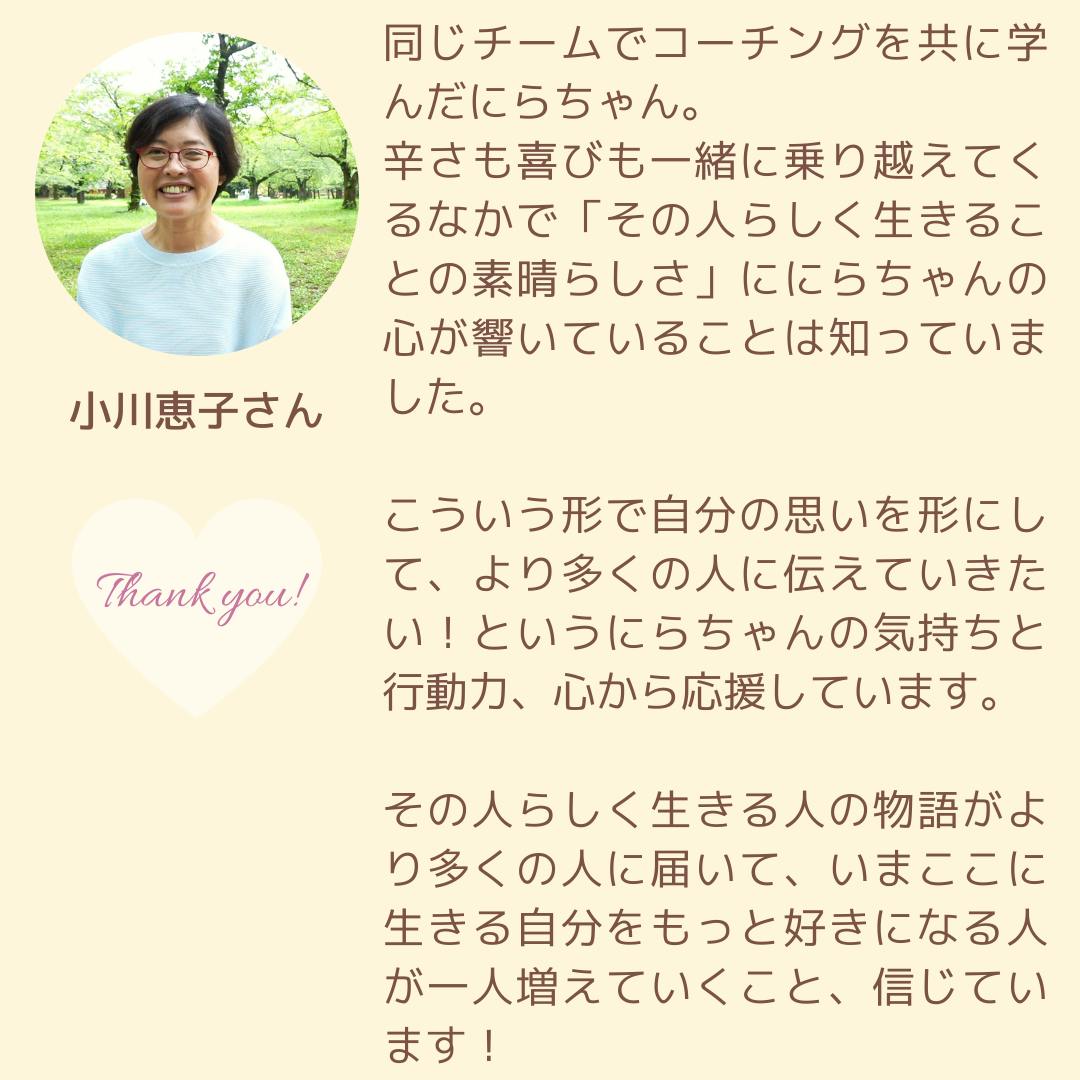 同じチームでコーチングを共に学
んだにらちゃん。
辛さも喜びも一緒に乗り越えてく
るなかで「その人らしく生きるこ
との素晴らしさ」ににらちゃんの
心が響いていることは知っていま
した。
小川恵子さん
こういう形で自分の思いを形にし
て、より多くの人に伝えていきた
い！というにらちゃんの気持ちと
行動力、心から応援しています。
Thank you!
その人らしく生きる人の物語がよ
り多くの人に届いて、いまここに
生きる自分をもっと好きになる人
が一人増えていくこと、信じてい
ます！